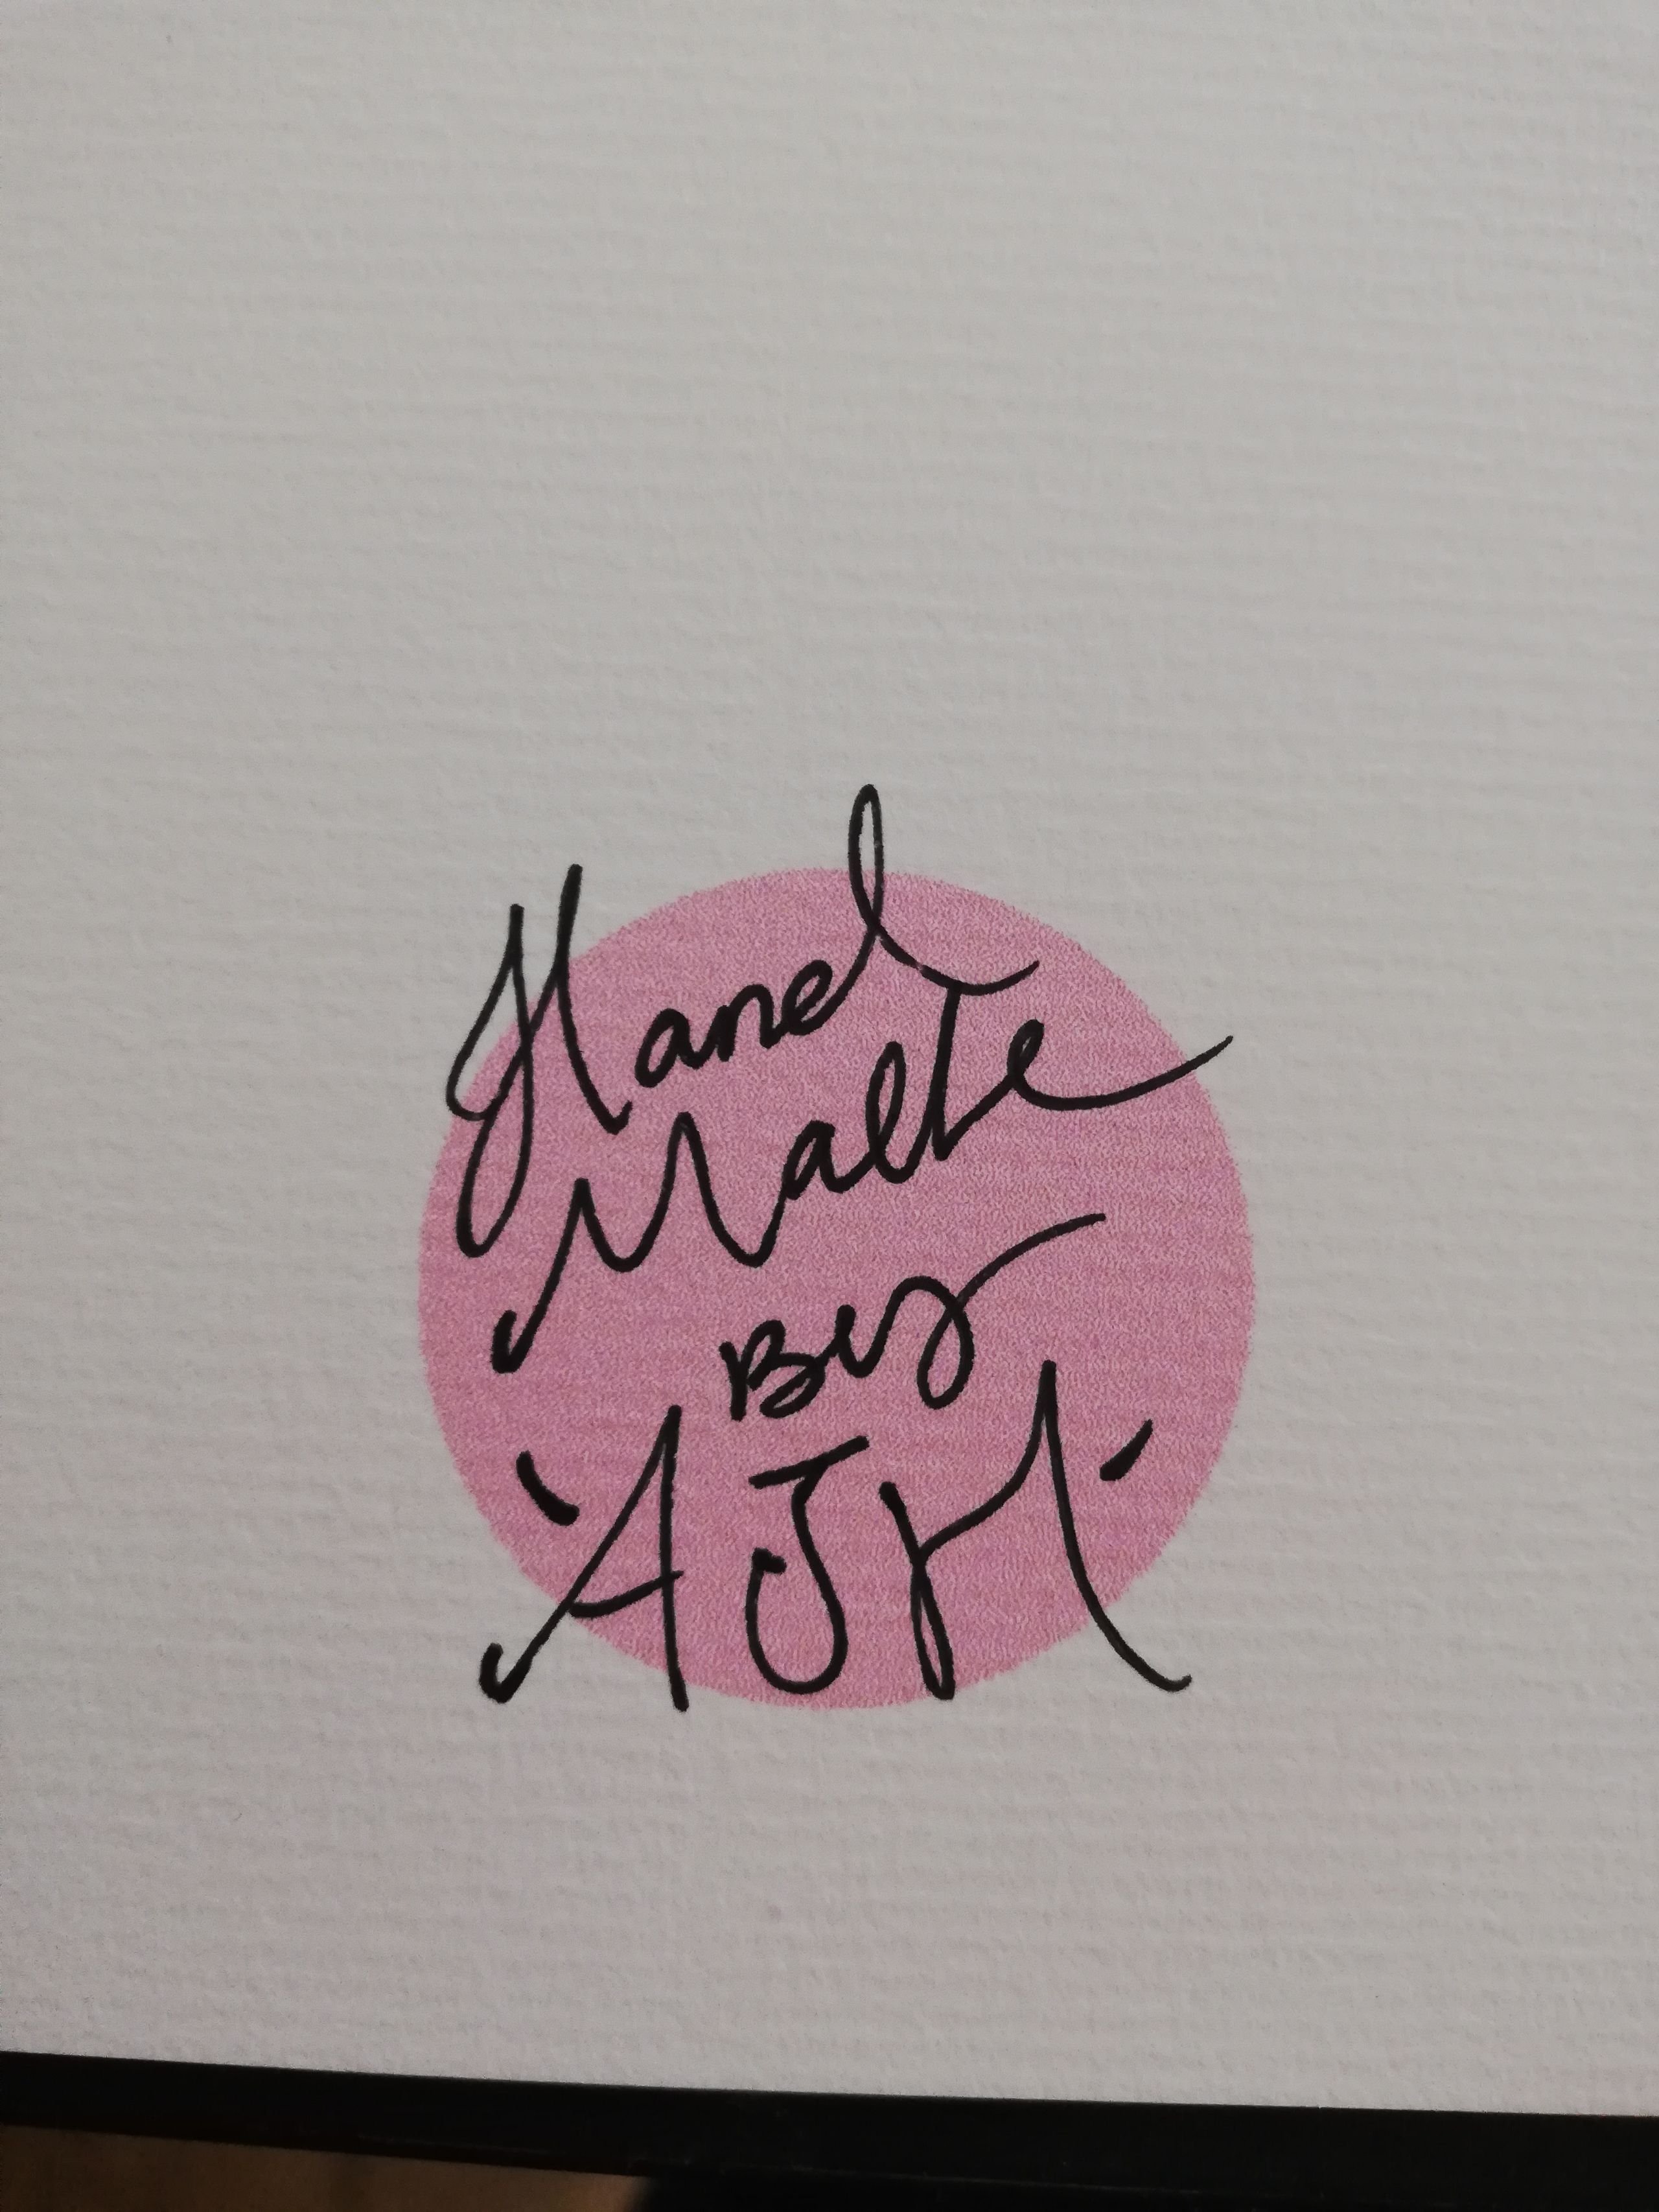 Hand
Made
By
'AJM'